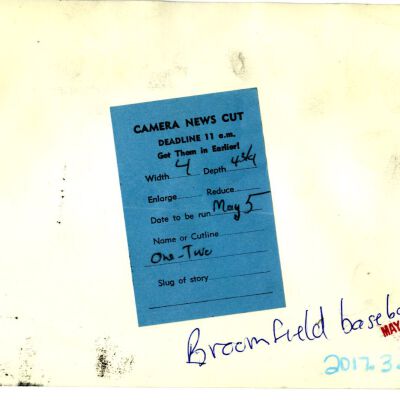 CAMERA NEWS CUT
DEADLINE 11 a.m.
Get Them in Earlier!
Width 4 Depth 4 3/4
Enlarge Reduce
Date to be run May 5
Name or Cutline
One-Two
Slug of story
Broomfield baseba
MAY
2012.3.